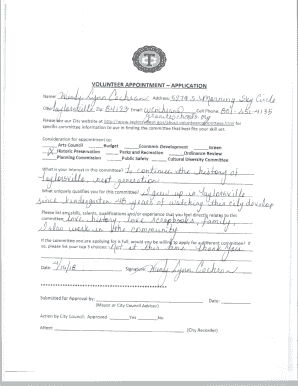 VOLUNTEER APPOINTMENT – APPLICATION
Name: Mindy Lynn Cochran Address: 5274 S. Morning Sky Circle
City: Taylorsville Zip: 84123 Email: Cell Phone: 801-
graniteschools.org
Please see our City website at
specific committee information to use in finding the committee that best fits your skill set.
Consideration for appointment to:
Arts Council Budget Economic Development Green
X Historic Preservation Parks and Recreation Ordinance Review
Planning Commission Public Safety Cultural Diversity Committee
What is your interest in this committee? To continue the history of
Taylorsville, next generation.
What uniquely qualifies you for this committee? I grew up in Taylorsville
since kindergarten 48 years of watching this city develop
Please list any skills, talents, qualifications and/or experience that you feel directly relates to this
committee: Love history, take scrapbooks, family,
I also work in the community
If the committee you are applying for is full, would you be willing to apply for a different committee? If
so, please list your top 3 choices: Not at this time Thank You
Date: Signature: Mindy Lynn Cochran
Submitted for Approval by: Date:
(Mayor or City Council Advisor)
Action by City Council: Approved Yes No
Attest: (City Recorder)